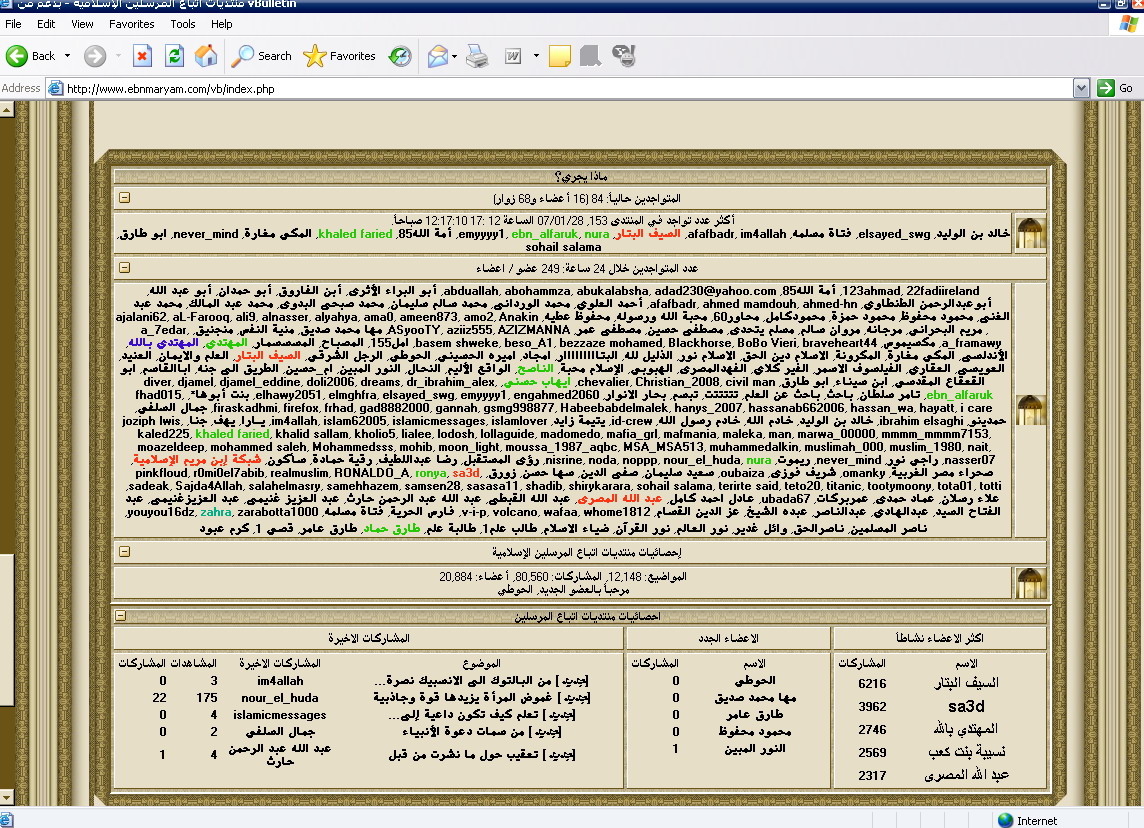 منتديات اتباع المرسلين الإسلامية - بدعم من vBulletin
File Edit View Favorites Tools Help
Back Search Favorites
Address http://www.ebnmaryam.com/vb/index.php Go
ماذا يجري؟
المتواجدين حالياً: 84 (16 أعضاء و68 زوار)
أكثر عدد تواجد في المنتدى 153, 07/01/28 الساعة 12 :17 12:17:10 صباحاً.
خالد بن الوليد, elsayed_swg, فتاة مسلمه, afafbadr, im4allah, السيف البتار, ebn_alfaruk, nura, emyyyy1, أمة الله85, khaled faried, المكي مغارة, never_mind, ابو طارق,
sohail salama
عدد المتواجدين خلال 24 ساعة: 249 عضو / اعضاء
123ahmad, 22fadiireland, أمة الله85, abduallah, abohammza, abukalabsha, adad230@yahoo.com, أبو البراء الأثرى, أبن الفاروق, أبو حمدان, أبو عبد الله,
أبوعبدالرحمن الطنطاوي, afafbadr, ahmed mamdouh, ahmed-hn, أحمد العلوي, محمد الورداني, محمد سالم سليمان, محمد صبحى البدوي, محمد عبد المالك, محمد عبد
الغنى, محمود محفوظ, محمود حمزة, محمودكامل, محاور60, محبة الله ورسوله, محفوظ عطيه, ajalani62, aL-Farooq, ali9, alnasser, alyahya, ama0, ameen873, amo2, Anakin
, مريم البحراني, مرجانه, مروان سالم, مسلم يتحدى, مصطفى حسين, مصطفى عمر, ASyooTY, aziiz555, AZIZMANNA, مها محمد صديق, منية النفس, منجنيق, a_7edar,
a_framawy, مكسيموس, basem shweke, beso_A1, bezzaze mohamed, Blackhorse, BoBo Vieri, braveheart44, امل155, المصباح, المصصصمار, المهتدي, المهتدي بالله,
الأندلسى, المكي مغارة, المكرونة, الاسلام دين الحق, الاسلام نور, الذليل لله, البتااااااااار, امجاد, اميره الحسينى, الحوطي, الرجل الشرقي, السيف البتار, العلم والايمان, العنيد,
القعقاع المقدسي, ابن سيناء, ابو طارق, chevalier, Christian_2008, civil man, ايهاب حسنى, diver, djamel, djamel_eddine, doli2006, dreams, dr_ibrahim_alex,
ebn_alfaruk, تامر سلطان, elhawy2051, elmghfra, elsayed_swg, emyyyy1, engahmed2060, fhad015,
firaskadhmi, firefox, frhad, gad8882000, gannah, gsmg998877, Habeebabdelmalek, hanys_2007, hassanab662006, hassan_wa, hayatt, i care, جمال السلفي,
حمدينو, ibrahim elsaghi, خالد بن الوليد, خادم الله, خادم رسول الله, id-crew, im4allah, islam62005, islamicmessages, islamlover, يتيمة زايد, joziph lwis,
kaled225, khaled faried, khalid sallam, kholio5, lialee, lodosh, lollaguide, madomedo, mafia_grl, mafmania, maleka, man, marwa_00000, mmmm_mmmm7153,
moazeldeep, mohammed saleh, Mohammedsss, mohib, moon_light, moussa_1987_aqbc, MSA_MSA513, muhammedalkin, muslimah_000, muslim_1980, nait,
nasser07, راجي نور, never_mind, ريموت, nisrine, noda, noppp, nour_el_huda, nura, رؤى المستقبل, رضا عبداللطيف, رقية حمادة, صاكون, شبكة إبن مريم الإسلامية,
صحراء مصر الغربية, omanky, شريف فوزى, oubaiza, سعيد سليمان, صفي الدين, سها حسن زورق, pinkfloud, r0mi0el7abib, realmuslim, RONALDO_A, ronya, sa3d,
sadeak, Sajda4Allah, salahelmasry, samehhazem, samsen28, sasass11, shadib, shirykarara, sohail salama, terirte said, teto20, titanic, tootymoony, tota01, totti,
علاء رسلان, عماد حمدي, عمربركات, ubada67, عادل احمد كامل, عبد الله المصرى, عبد الله القبطى, عبد الله عبد الرحمن حارث, عبد العزيز غنيمى, عبد العزيزغنيمى, عبد
الفتاح السيد, عبدالهادي, عبدالناصر, عبده الشيخ, عز الدين القسام, v-i-p, volcano, wafaa, whome1812, فارس الحرية, فتاة مسلمه, youyou16dz, zahra, zarabotta1000,
ناصر المسلمين, ناصرالحق, وائل غدير, نور العالم, نور القرآن, ضياء الاسلام, طالب علم1, طالبة علم, طارق حماد, طارق عامر, قصى 1, كرم عبود
إحصائيات منتديات اتباع المرسلين الإسلامية
المواضيع: 12,148, المشاركات: 80,560, أعضاء: 20,884
مرحباً بالعضو الجديد, الحوطي
احصائيات منتديات اتباع المرسلين
اكثر الاعضاء نشاطاً الاعضاء الجدد المشاركات الاخيرة
الاسم المشاركات الاسم المشاركات الموضوع المشاركات الاخيرة المشاهدات المشاركات
السيف البتار 6216
sa3d 3962
المهتدي بالله 2746
نسيبة بنت كعب 2569
عبد الله المصرى 2317
الحوطي 0
مها محمد صديق 0
طارق عامر 0
محمود محفوظ 0
النور المبين 1
[جديد] من البالتوك الى الانسبيك نصرة... im4allah 3 0
[جديد] غموض المرأة يزيدها قوة وجاذبية nour_el_huda 175 22
[جديد] تعلم كيف تكون داعية إلى... islamicmessages 4 0
[جديد] من صفات دعوة الأنبياء جمال السلفي 2 0
[جديد] تعقيب حول ما نشرت من قبل عبد الله عبد الرحمن حارث 4 1
Internet